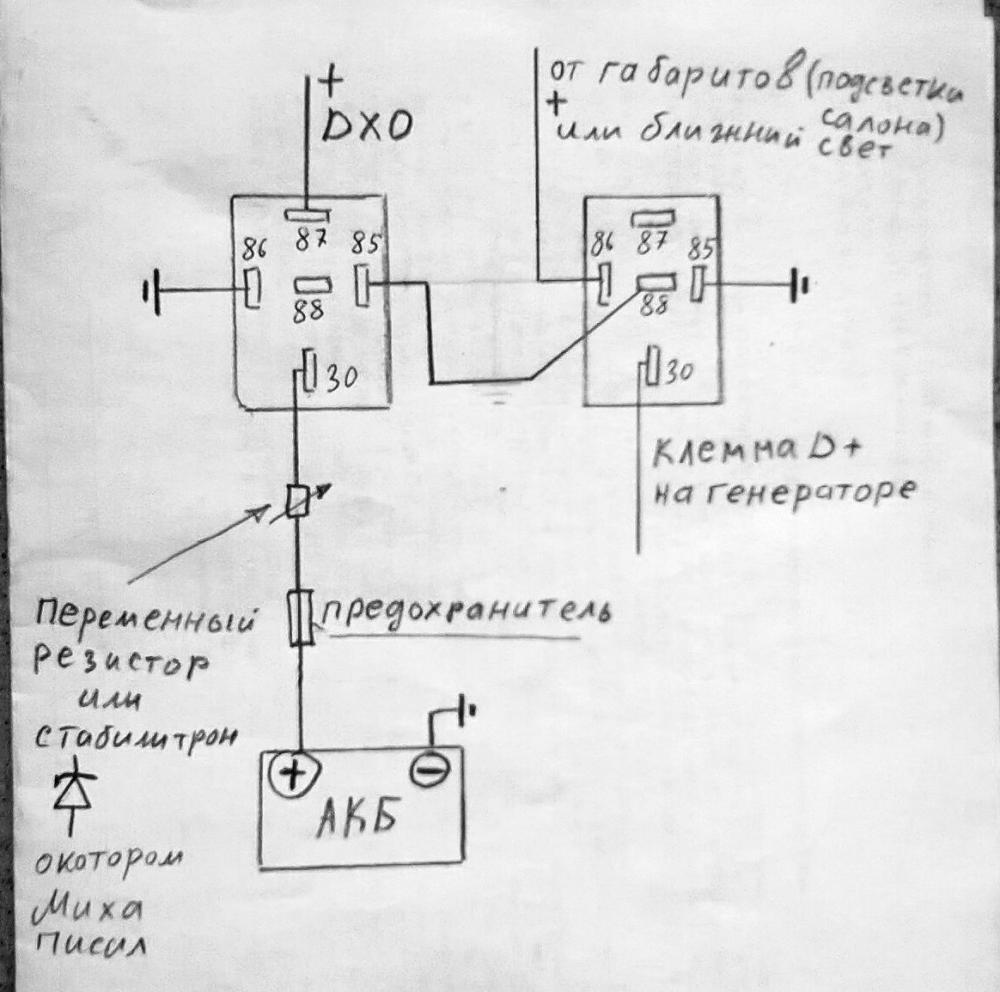 +
DXO
от габаритов (подсветки
салона)
+
или ближний свет
86
87
85
88
30
86
87
85
88
30
клемма D+
на генераторе
переменный
резистор
или
стабилитрон
предохранитель
+
−
АКБ
окотором
Миха
писил